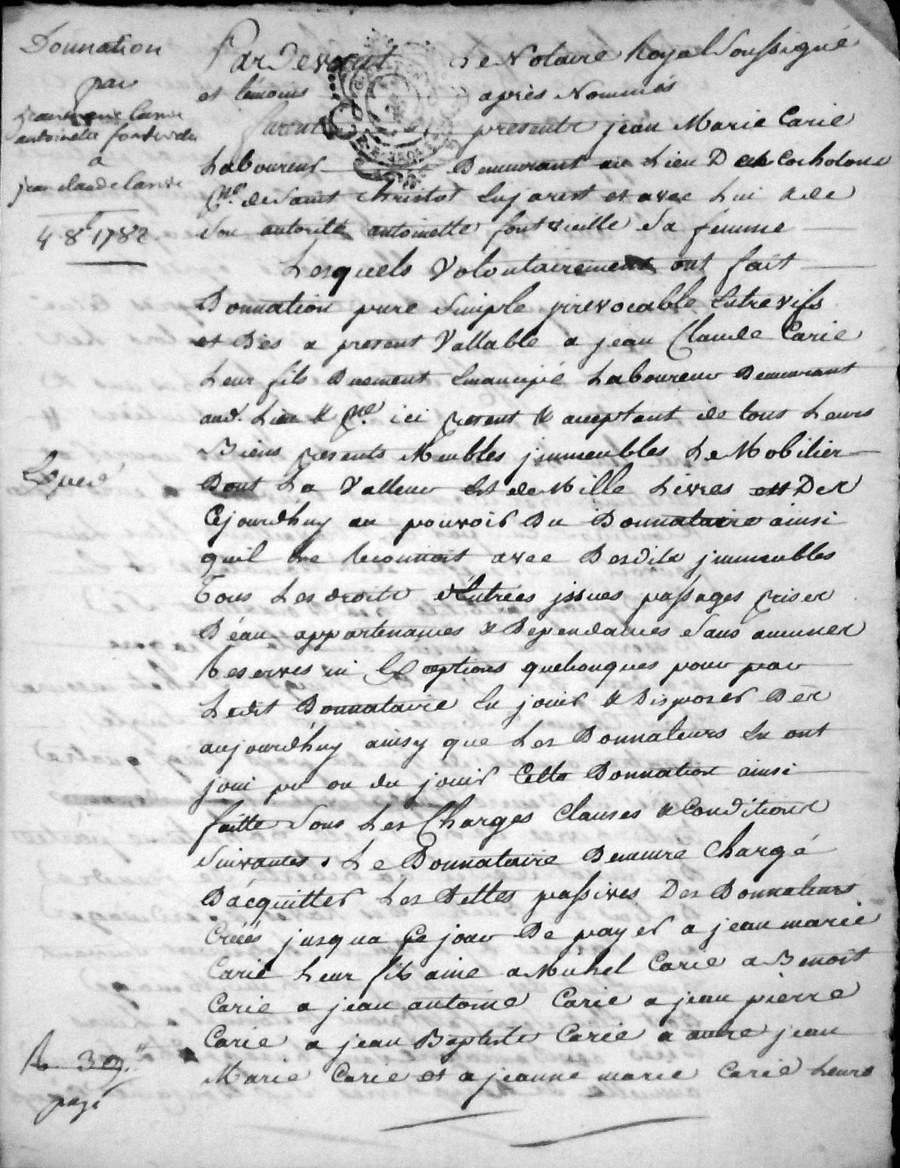 Donnation
par
jean marie Carrie
antoinette fontvielle
a
jean claude Carrie
4 8.e 1782
Par Devant Le Notaire Royal Soussigné
et témoins après Nommés
furent presents jean Marie Carie
Laboureur Demeurant au Lieu De
p.sse de Saint Christot Lajarest et avec Lui & de
Son autorité antoinette fontvieille Sa femme
Lesquels Volontairement ont fait
Donnation pure Simple irrevocable Entrevifs
et Dès a present Vallable a jean Claude Carie
Leur fils Duement Emancipé Laboureur Demeurant
aud. Lieu & p.sse ici present & acceptant de tous Leurs
Biens presents Meubles jmmeubles Le Mobilier
Dont La Valleur Est de Mille Livres est Der
Cejourdhuy au pouvoir Du Donnataire ainsi
quil le Reconnoit avec Desdits jmmeubles
Tous Les droits d'Entrées jssues passages prises
D'eau appartenances & Dependances Sans aucunes
Reserves ni Exceptions quelconques pour par
Ledit Donnataire En jouir & Disposer Der
aujourdhuy ainsy que Les Donnateurs En ont
joui pu ou du jouir Cette Donnation ainsi
faitte Sous Les Charges Clauses & Conditions
Suivantes. Le Donnataire Demeure Chargé
D'acquitter Les Dettes passives Des Donnateurs
Créés jusqua Ce jour De payer a jean marie
Carie Leur fils ainé a Michel Carie a Benoit
Carie a jean antoine Carie a jean pierre
Carie a jean Baptiste Carie a autre jean
Marie Carie et a jeanne marie Carie Leurs
R 39.
page